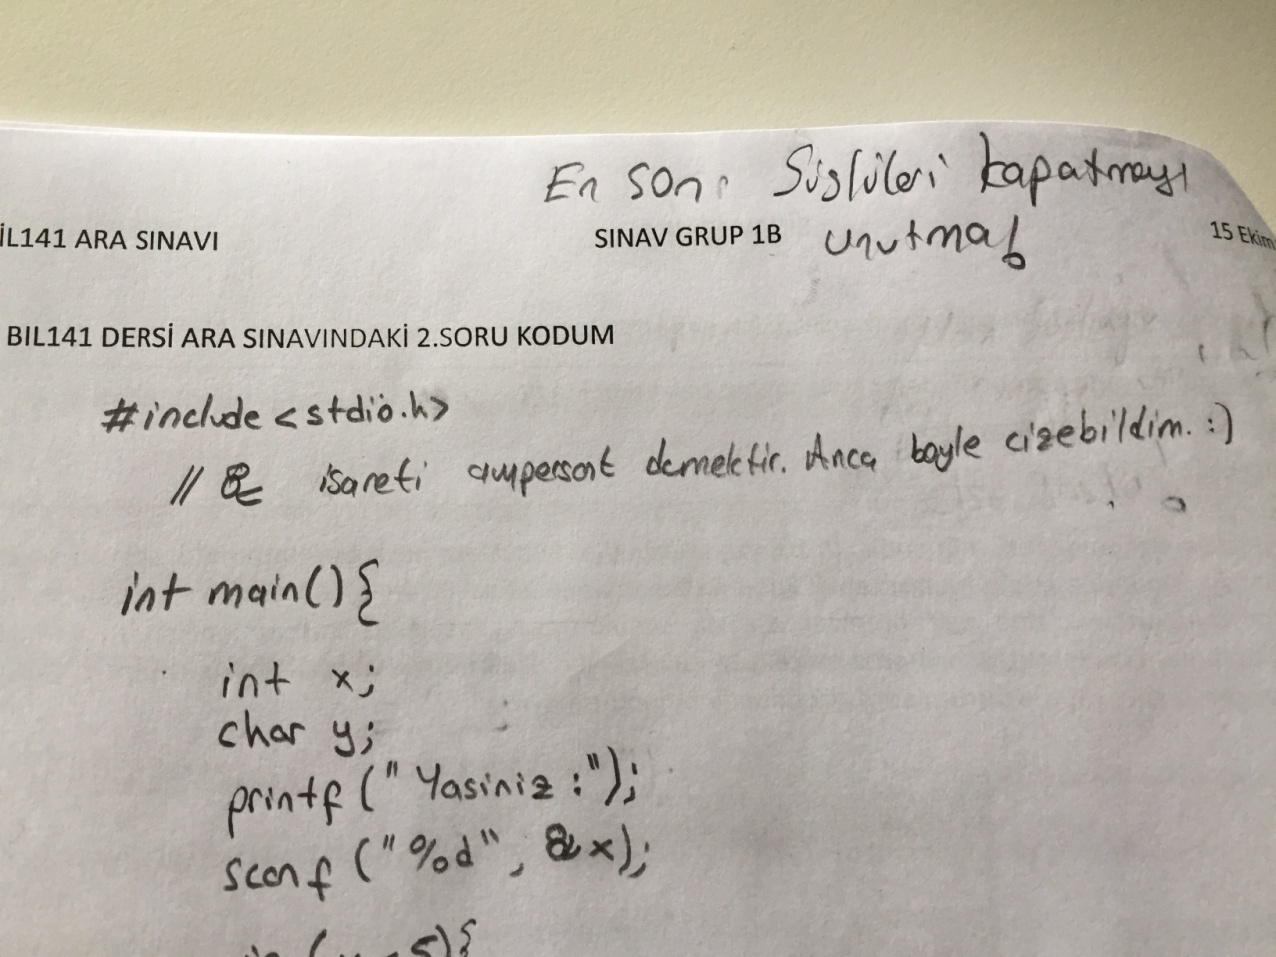 En son: Süslüleri kapatmayı
unutma!
İL141 ARA SINAVI SINAV GRUP 1B 15 Ekim
BIL141 DERSİ ARA SINAVINDAKİ 2.SORU KODUM
#include <stdio.h>
// & isareti ampersant demektir. Anca boyle cizebildim. :)
int main(){
int x;
char y;
printf("Yasiniz :");
scanf("%d", &x);